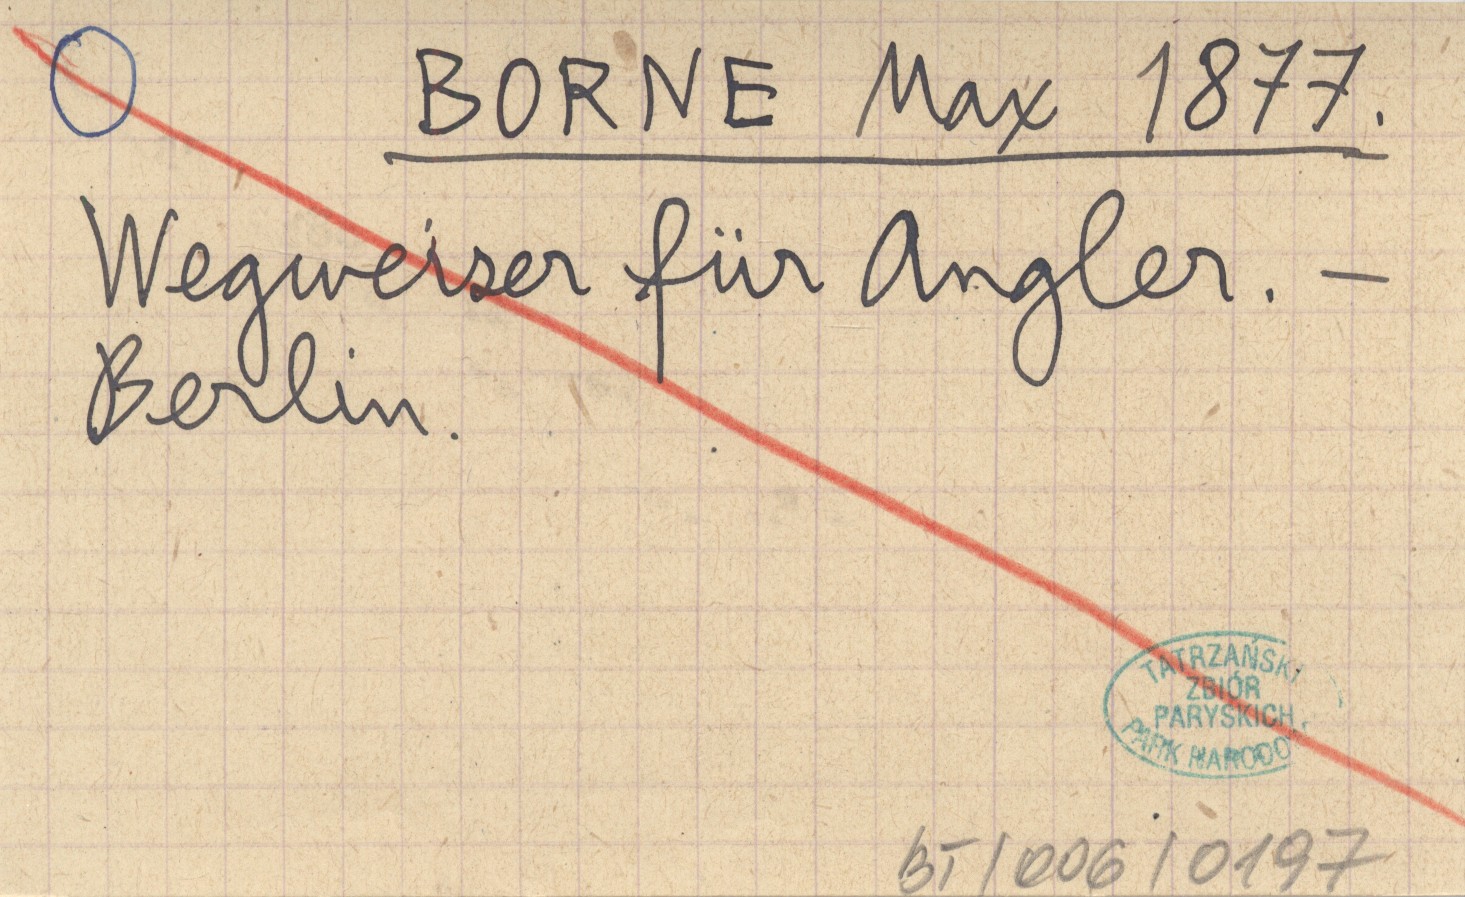 BORNE Max 1877.
Wegweiser für Angler. —
Berlin.
TATRZAŃSKI
ZBIÓR
PARYSKICH
PARK NARODO
BT/006/0197